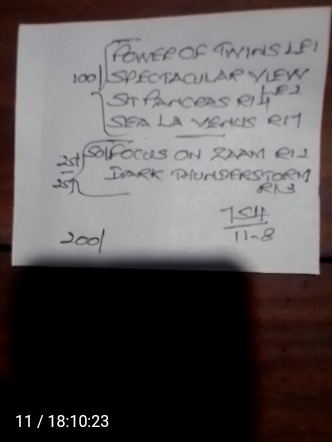 POWER OF TWINS LE1
100/ SPECTACULAR VIEW
LE2
ST PANCRAS R14
SEA LA VENUS R17
50/ FOCUS ON ZAAM R12
25/
25/ DARK THUNDERSTORM
R13
754
11-8
200/
11 / 18:10:23